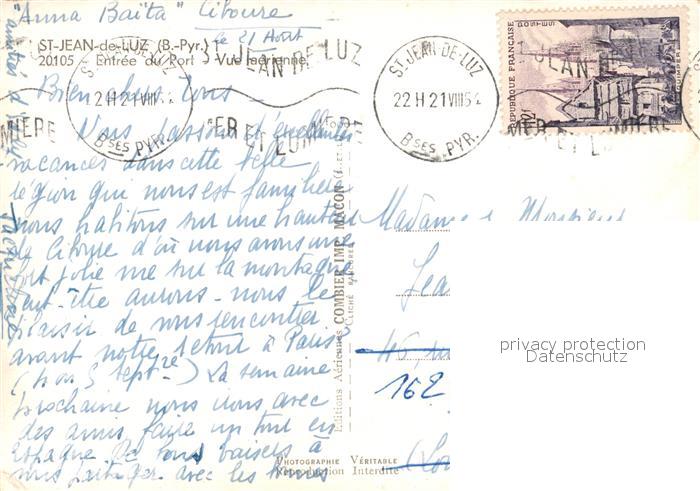 "Anna Baïta" Ciboure
le 21 Août
ST-JEAN-de-LUZ (B.-Pyr.)
20105 - Entrée du Port - Vue aérienne
Bien chers tous
Nous passons d'excellentes
vacances dans cette belle
région qui nous est familière
nous habitons sur une hauteur
de Ciboure d'où nous avons une
fort jolie vue sur la montagne
Peut-être aurons-nous le
plaisir de vous rencontrer
avant notre retour à Paris
La semaine
prochaine nous irons avec
des amis faire un tour en
Espagne. De bons baisers à
vous partager avec les
amitiés
ST-JEAN-DE-LUZ
12H 21 VIII 52
Bses PYR.
ST JEAN DE LUZ
MER ET LUMIERE
ST-JEAN-DE-LUZ
22H 21 VIII 52
Bses PYR.
REPUBLIQUE FRANÇAISE
POSTES
QUIMPER
Editions Aériennes COMBIER IMP. MACON
Madame et Monsieur
Jea
46, ru
162
PHOTOGRAPHIE VÉRITABLE
Reproduction Interdite
privacy protection
Datenschutz